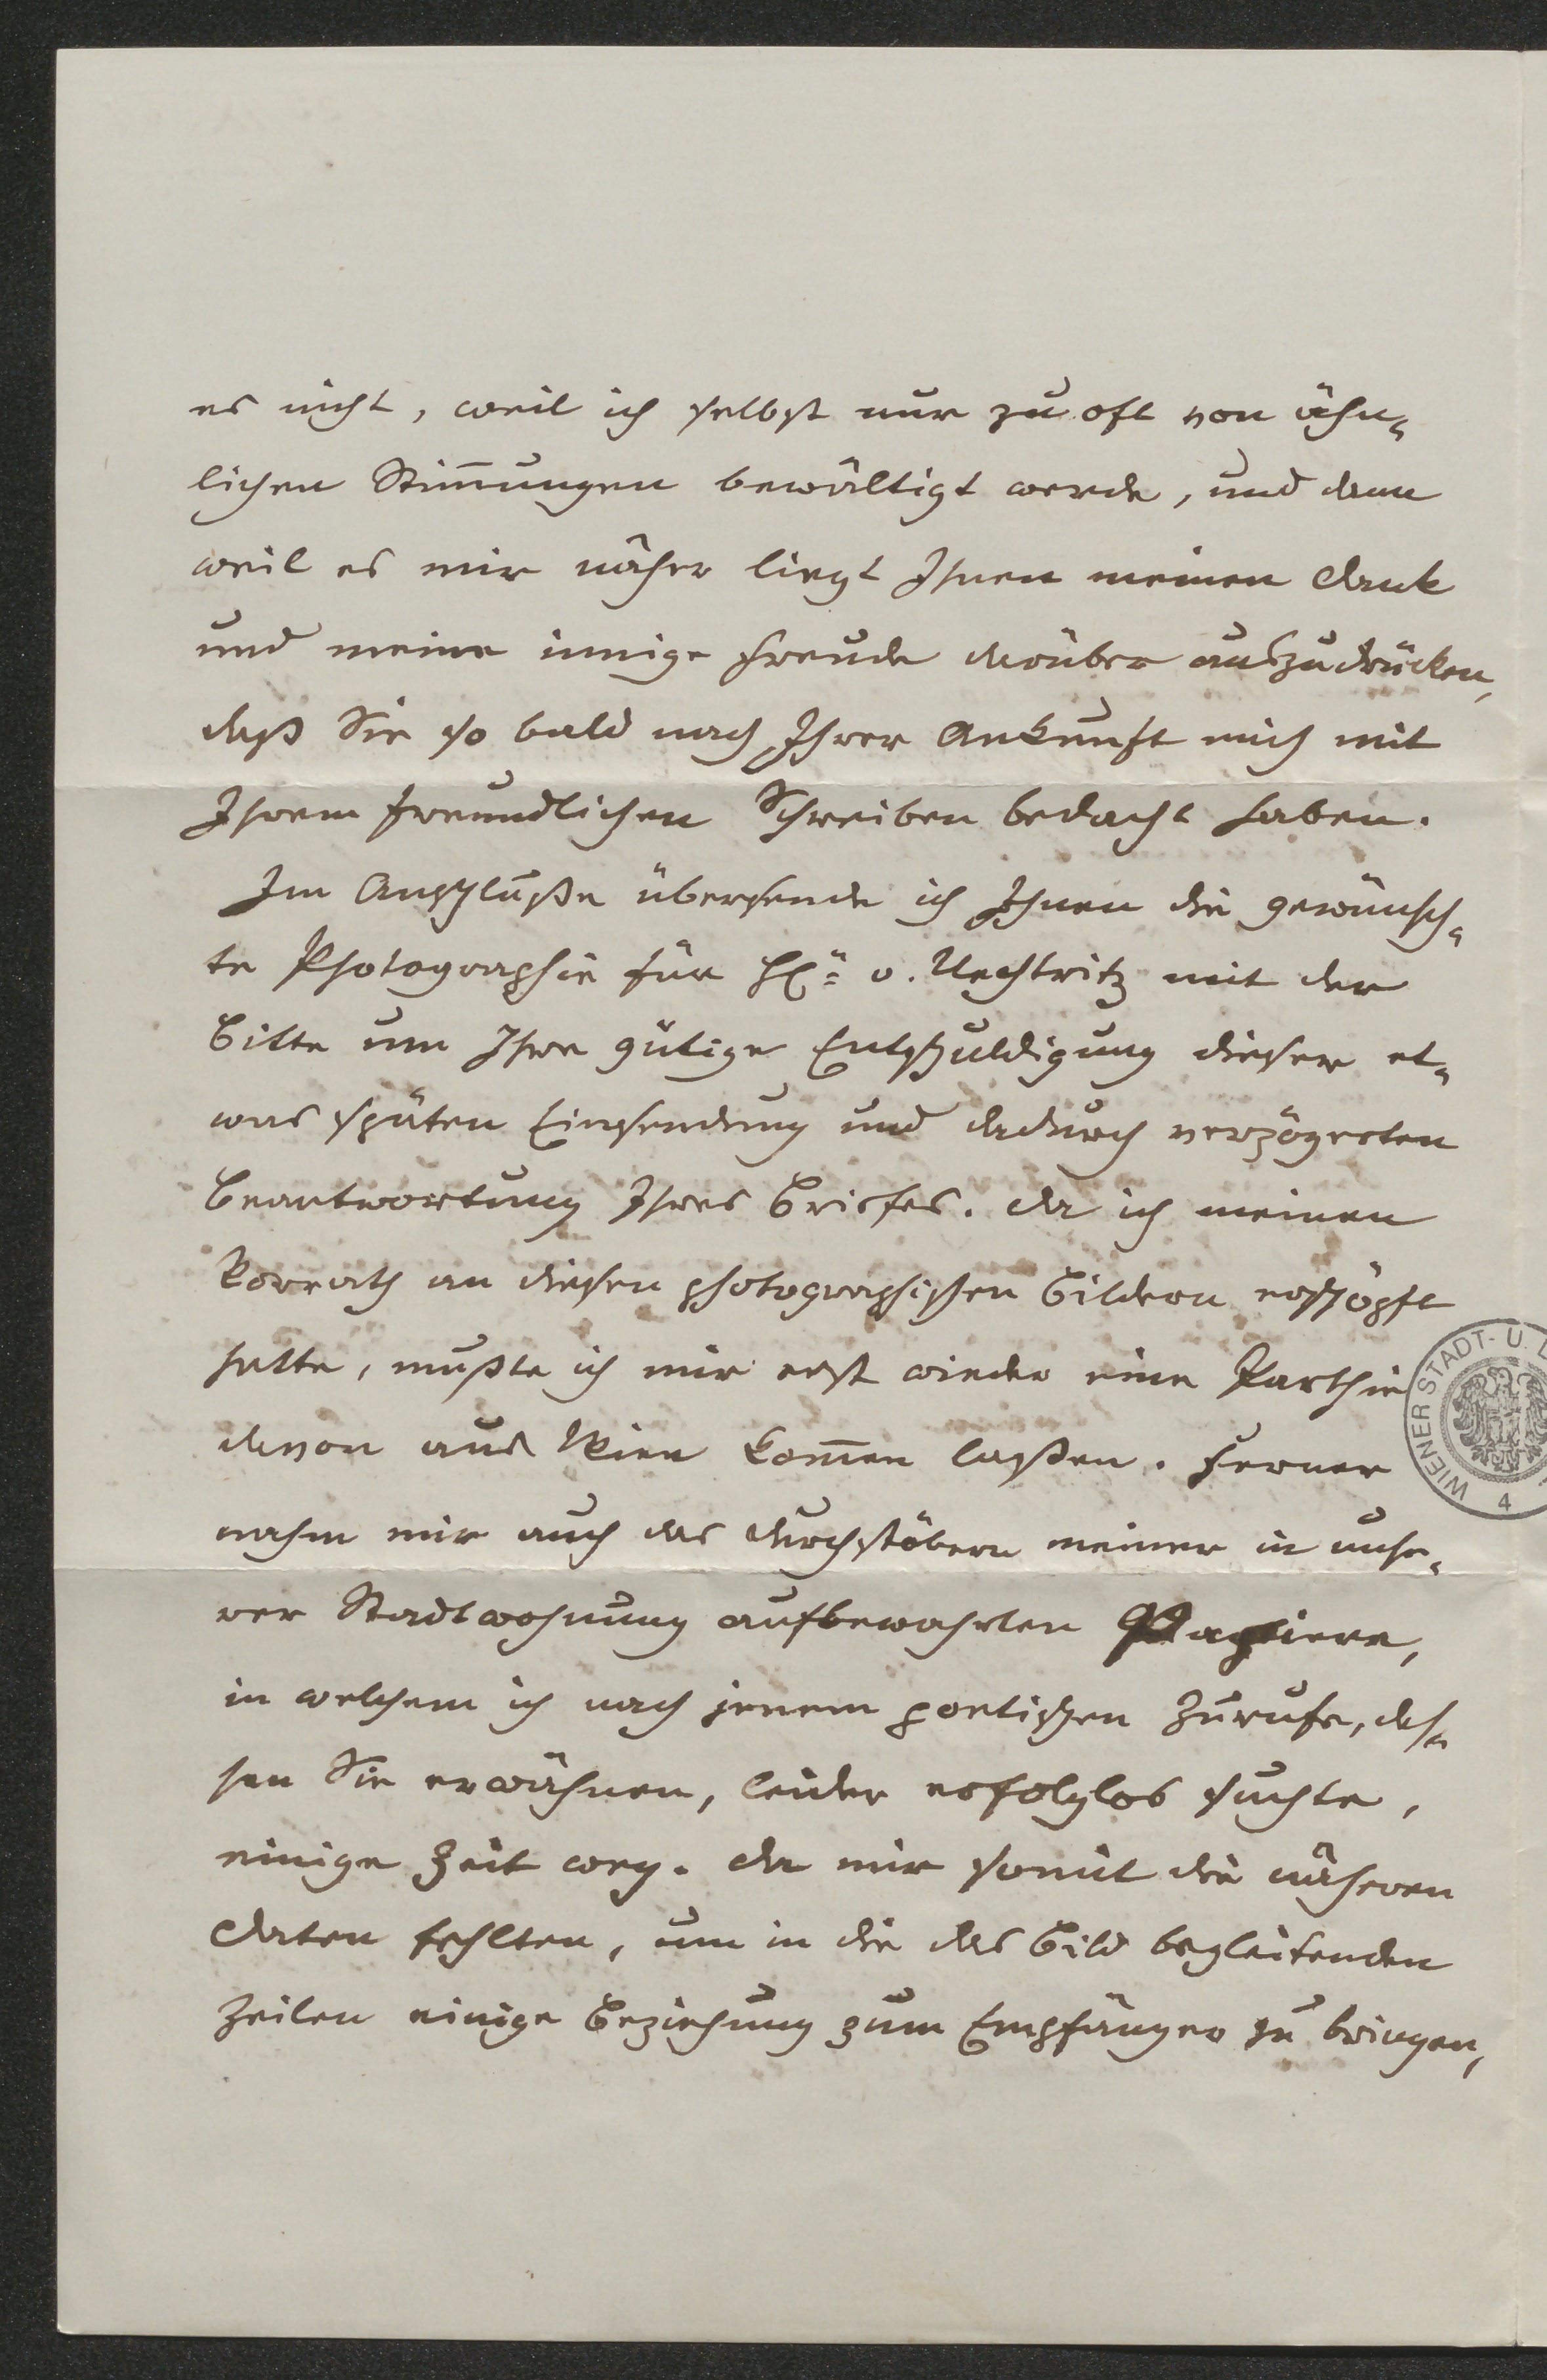 es nicht, weil ich selbst nur zu oft von ähn-
lichen Stim̅ungen bewältigt werde, und dann
weil es mir näher liegt Ihnen meinen Dank
und meine innige Freude darüber auszudrücken,
daß Sie so bald nach Ihrer Ankunft mich mit
Ihrem freundlichen Schreiben bedacht haben.
Im Anschluße übersende ich Ihnen die gewünsch-
te Photographie für H: v. Uechtritz mit der
Bitte um Ihre gütige Entschuldigung dieser et-
was späten Einsendung und dadurch verzögerten
Beantwortung Ihres Briefes. Da ich meinen
Vorrath an diesen photographischen Bildern erschöpft
hatte, mußte ich mir erst wieder eine Parthie
davon aus Wien kom̅en laßen. Ferner
nahm mir auch das Durchstöbern meiner in unse-
rer Stadtwohnung aufbewahrten Papiere,
in welchem ich nach jenem poetischen Zurufe, des-
sen Sie erwähnen, leider erfolglos suchte,
einige Zeit weg. Da mir somit die näheren
Daten fehlten, um in die das Bild begleitenden
Zeilen einige Beziehung zum Empfänger zu bringen,
WIENER STADT- U. L
4